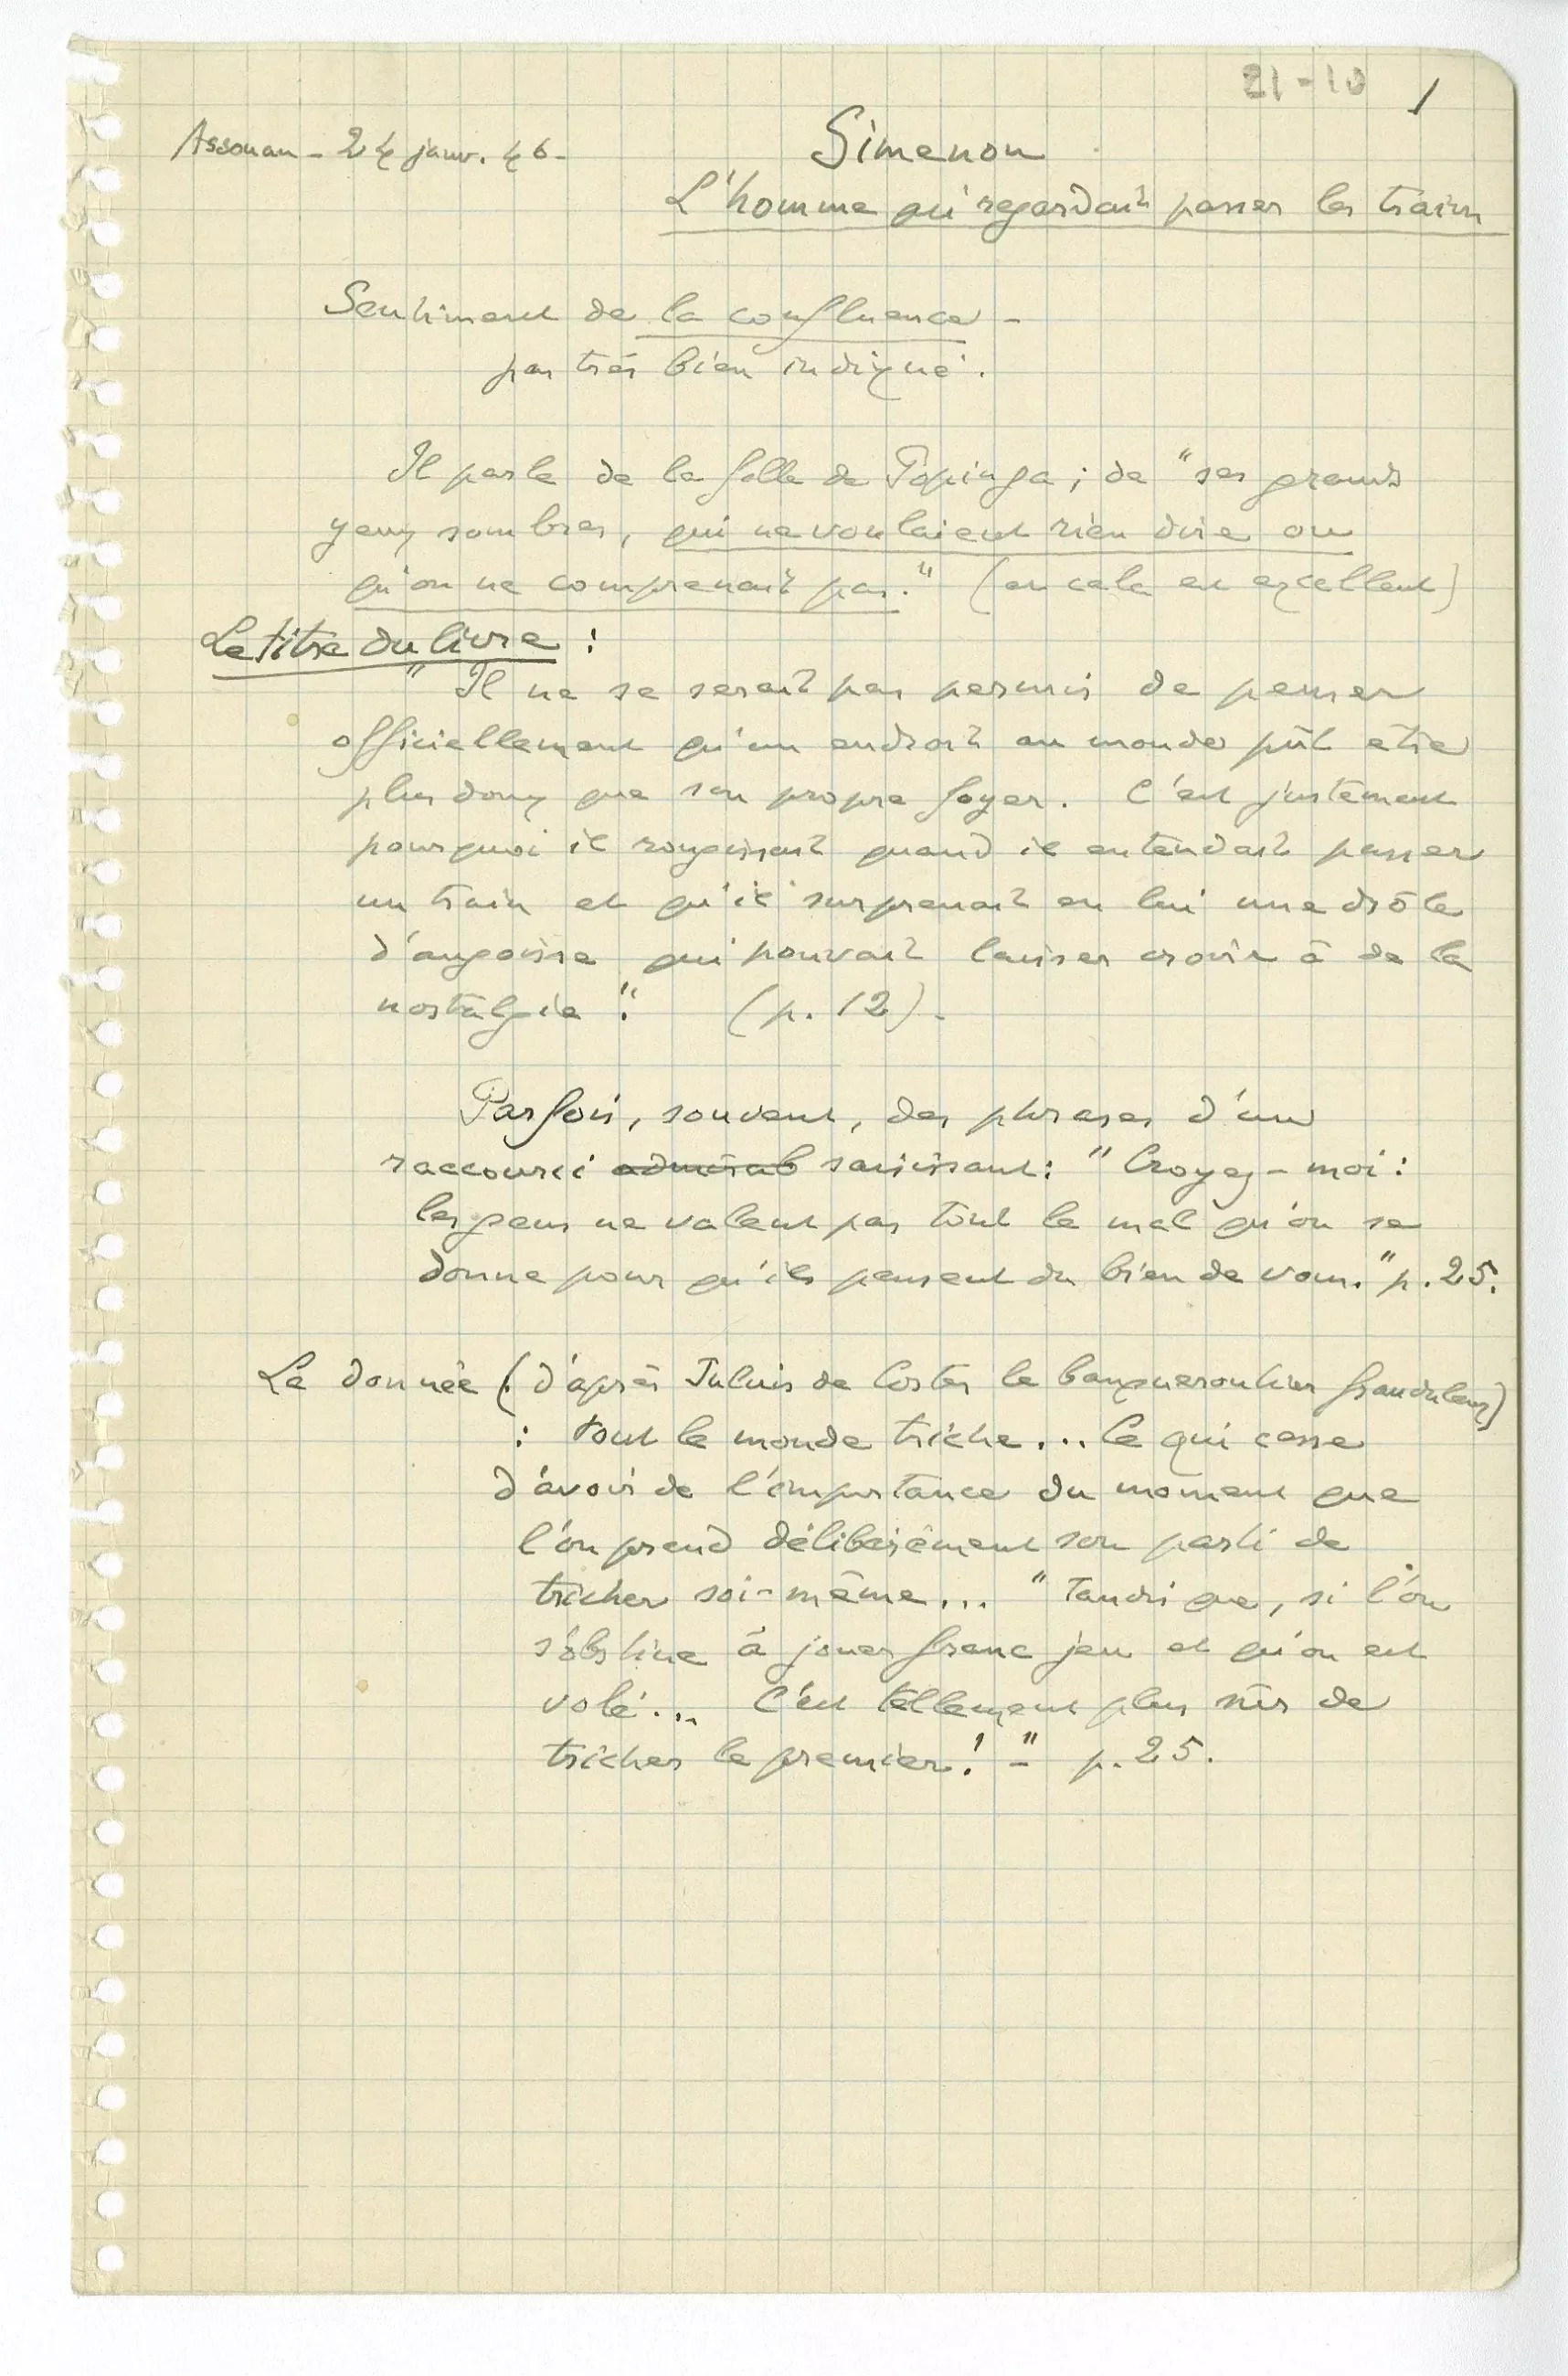 21-10 1
Assouan - 24 janv. 46 -
Simenon
L'homme qui regardait passer les trains
Sentiment de la confluence -
pas très bien indiqué.
Il parle de la fille de Popinga ; de "ses grands
yeux sombres, qui ne voulaient rien dire ou
qu'on ne comprenait pas." (et cela est excellent)
Le titre du livre :
"Il ne se serait pas permis de penser
officiellement qu'un endroit au monde pût être
plus doux que son propre foyer. C'est justement
pourquoi il rougissait quand il entendait passer
un train et qu'il surprenait en lui une drôle
d'angoisse qui pouvait laisser croire à de la
nostalgie". (p. 12) -
Parfois, souvent, des phrases d'un
raccourci admirab saisissant : "Croyez-moi :
les gens ne valent pas tout le mal qu'on se
donne pour qu'ils pensent du bien de vous." p. 25.
La donnée (d'après Julius de Coster le banqueroutier frauduleux)
: tout le monde triche... Ce qui cesse
d'avoir de l'importance du moment que
l'on prend délibérément son parti de
tricher soi-même... "Tandis que, si l'on
s'obstine à jouer franc jeu et qu'on est
volé... C'est tellement plus sûr de
tricher le premier ! -" p. 25.